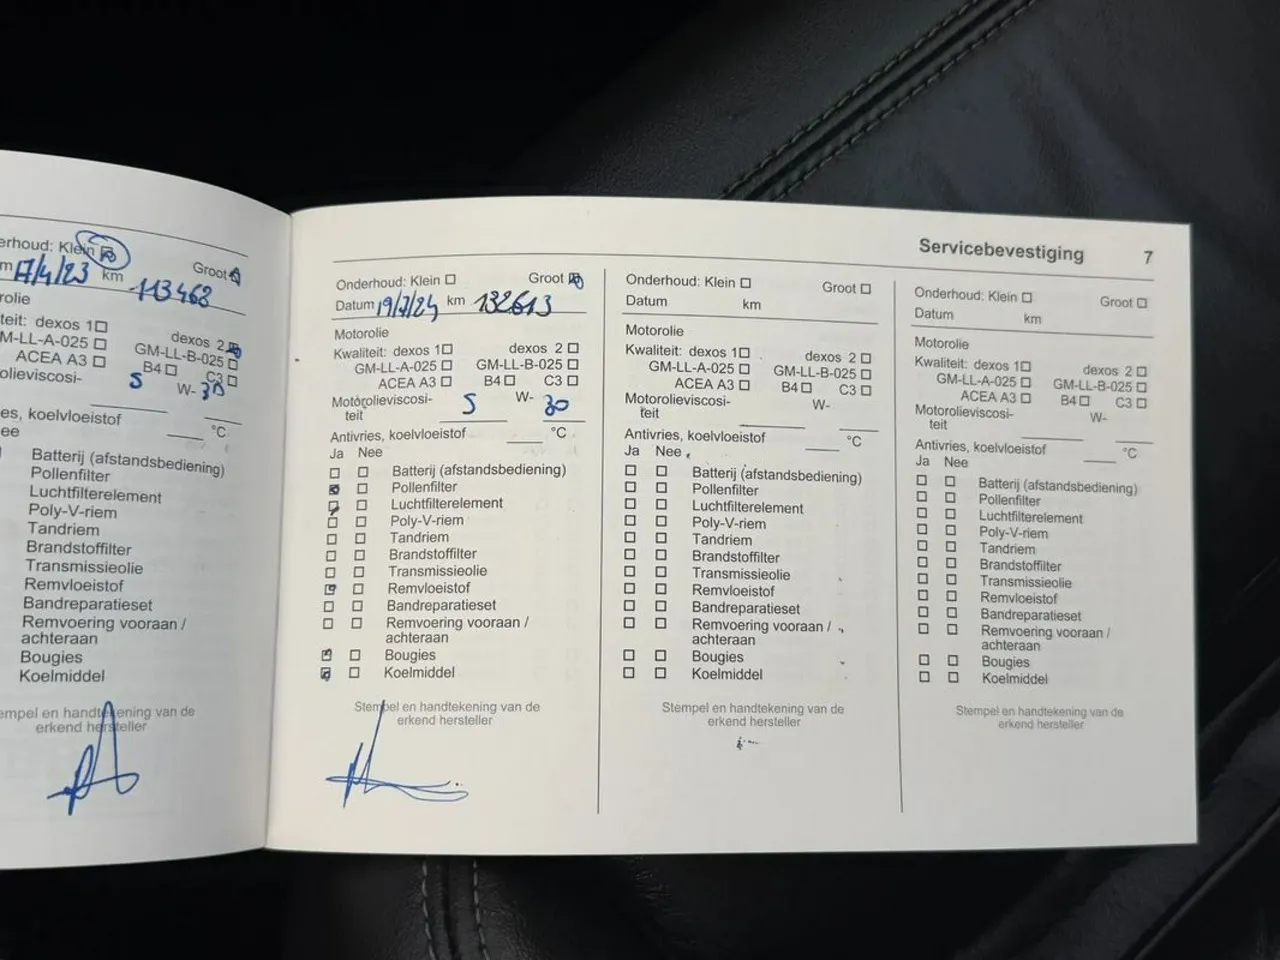 erhoud: Klein
Groot
m 17/4/23 km 113468
rolie
teit: dexos 1
dexos 2
M-LL-A-025
GM-LL-B-025
ACEA A3
B4
C3
olieviscosi-
5 W- 30
ies, koelvloeistof
°C
ee
Batterij (afstandsbediening)
Pollenfilter
Luchtfilterelement
Poly-V-riem
Tandriem
Brandstoffilter
Transmissieolie
Remvloeistof
Bandreparatieset
Remvoering vooraan /
achteraan
Bougies
Koelmiddel
empel en handtekening van de
erkend hersteller
Servicebevestiging 7
Onderhoud: Klein Groot
Datum 19/7/24 km 132613
Motorolie
Kwaliteit: dexos 1 dexos 2
GM-LL-A-025 GM-LL-B-025
ACEA A3 B4 C3
Motorolieviscosi-
teit
5 W- 30
Antivries, koelvloeistof °C
Ja Nee
Batterij (afstandsbediening)
Pollenfilter
Luchtfilterelement
Poly-V-riem
Tandriem
Brandstoffilter
Transmissieolie
Remvloeistof
Bandreparatieset
Remvoering vooraan /
achteraan
Bougies
Koelmiddel
Stempel en handtekening van de
erkend hersteller
Onderhoud: Klein Groot
Datum km
Motorolie
Kwaliteit: dexos 1 dexos 2
GM-LL-A-025 GM-LL-B-025
ACEA A3 B4 C3
Motorolieviscosi-
teit
W-
Antivries, koelvloeistof °C
Ja Nee
Batterij (afstandsbediening)
Pollenfilter
Luchtfilterelement
Poly-V-riem
Tandriem
Brandstoffilter
Transmissieolie
Remvloeistof
Bandreparatieset
Remvoering vooraan /
achteraan
Bougies
Koelmiddel
Stempel en handtekening van de
erkend hersteller
Onderhoud: Klein Groot
Datum km
Motorolie
Kwaliteit: dexos 1 dexos 2
GM-LL-A-025 GM-LL-B-025
ACEA A3 B4 C3
Motorolieviscosi-
teit
W-
Antivries, koelvloeistof °C
Ja Nee
Batterij (afstandsbediening)
Pollenfilter
Luchtfilterelement
Poly-V-riem
Tandriem
Brandstoffilter
Transmissieolie
Remvloeistof
Bandreparatieset
Remvoering vooraan /
achteraan
Bougies
Koelmiddel
Stempel en handtekening van de
erkend hersteller